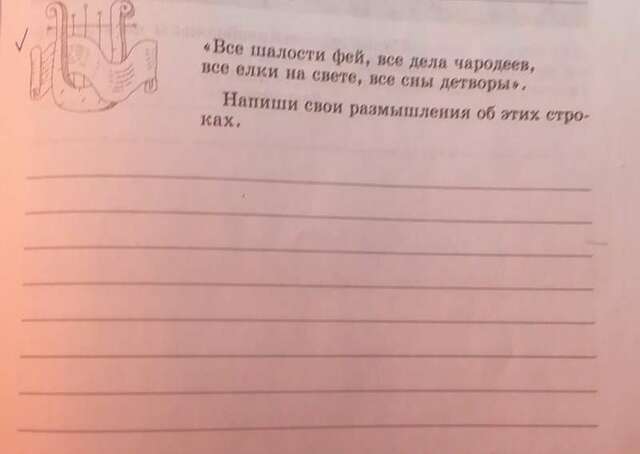 «Все шалости фей, все дела чародеев,
все елки на свете, все сны детворы».
Напиши свои размышления об этих стро-
ках.